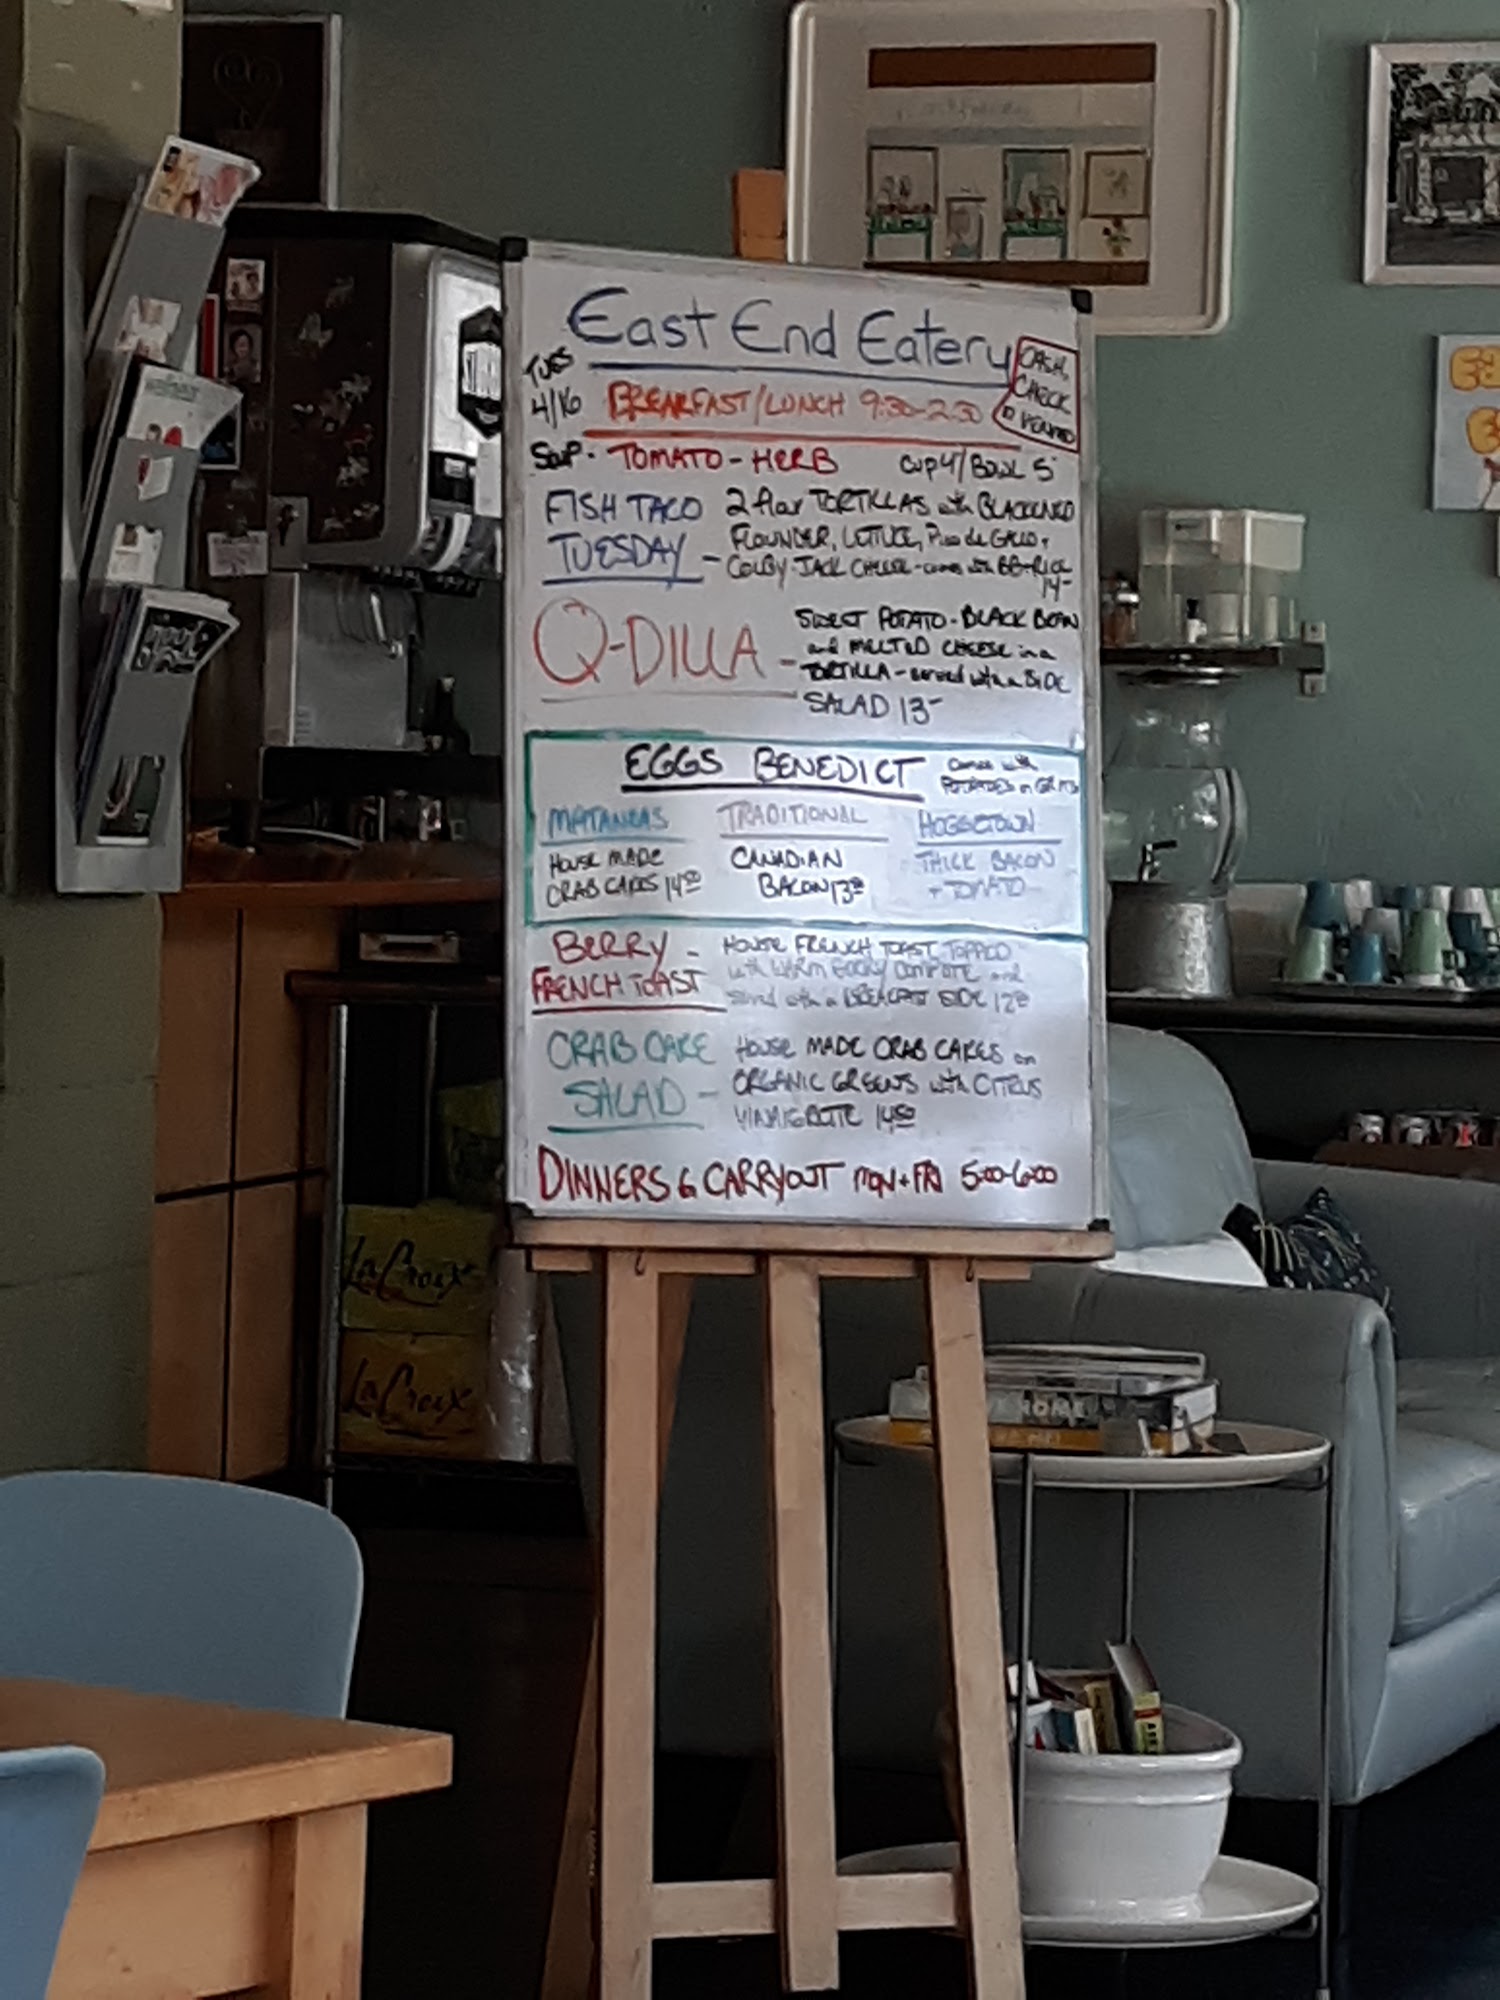 East End Eatery
TUES
4/16
CASH,
CHECK
BREAKFAST/LUNCH 9:30-2:30
SOUP - TOMATO - HERB CUP 4/BOWL 5
FISH TACO
TUESDAY -
2 flour TORTILLAS with BLACKENED
FLOUNDER, LETTUCE, Pico de GALLO +
COLBY-JACK CHEESE - comes with BB+Rice
14-
Q-DILLA -
SWEET POTATO - BLACK BEAN
and MELTED CHEESE in a
TORTILLA - served with a SIDE
SALAD 13-
EGGS BENEDICT
Comes with
POTATOES or GRITS
MATANZAS
HOUSE MADE
CRAB CAKES 14.50
TRADITIONAL
CANADIAN
BACON 13.50
HOGGETOWN
THICK BACON
+ TOMATO
BERRY -
FRENCH TOAST
HOUSE FRENCH TOAST TOPPED
with WARM BERRY COMPOTE and
served with a BREAKFAST SIDE 12.50
CRAB CAKE
SALAD -
HOUSE MADE CRAB CAKES on
ORGANIC GREENS with CITRUS
VINAIGRETTE 14.50
DINNERS to CARRYOUT MON + FRI 5:00-6:00
LaCroix
LaCroix
HOME